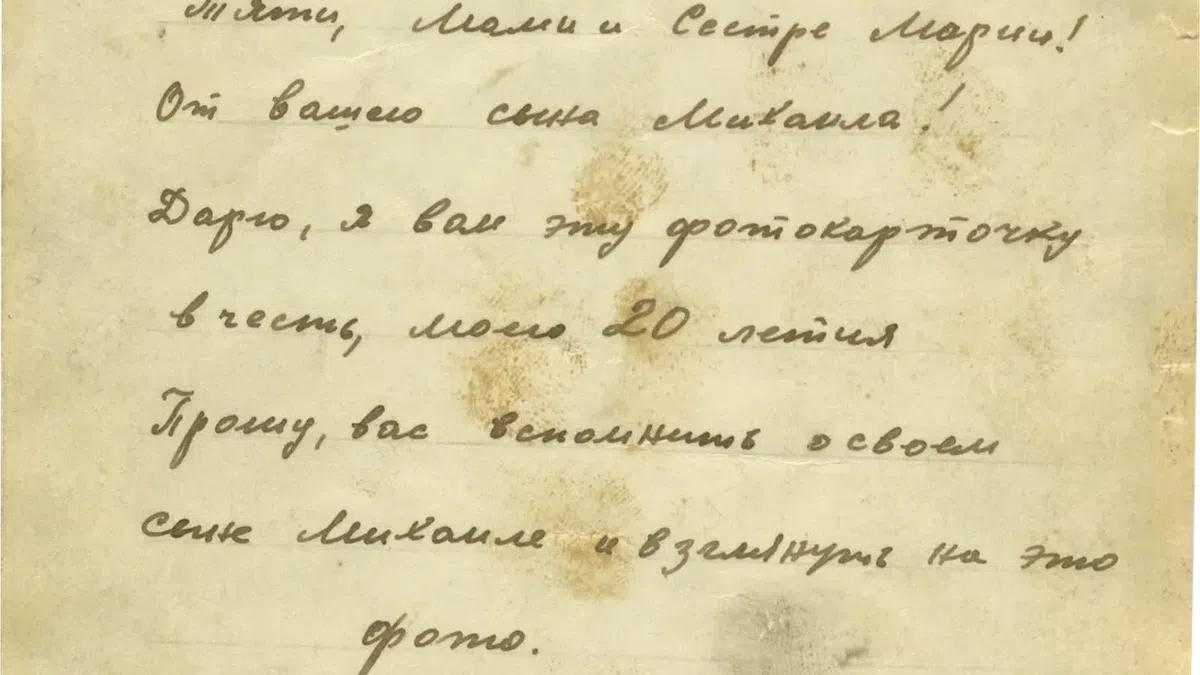 Тяти, Мами и Сестре Марии!
От вашего сына Михаила!
Дарю, я вам эту фотокарточку
в честь, моего 20 летия
Прошу, вас вспомнить о своем
сыне Михаиле и взглянуть на это
фото.